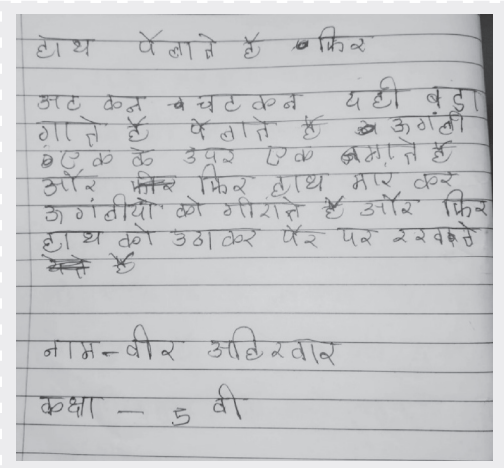 हाथ फैलाते है फिर
अट कन चटकन दही बड़ा
गाते हैं फैलाते है ऊगंली
एक के उपर एक जमाते है
और फिर हाथ मार कर
ऊगंलीयो को गीराते है और फिर
हाथ को उठाकर पैर पर रखते
है
नाम - वीर अहिरवार
कक्षा - 5 वी